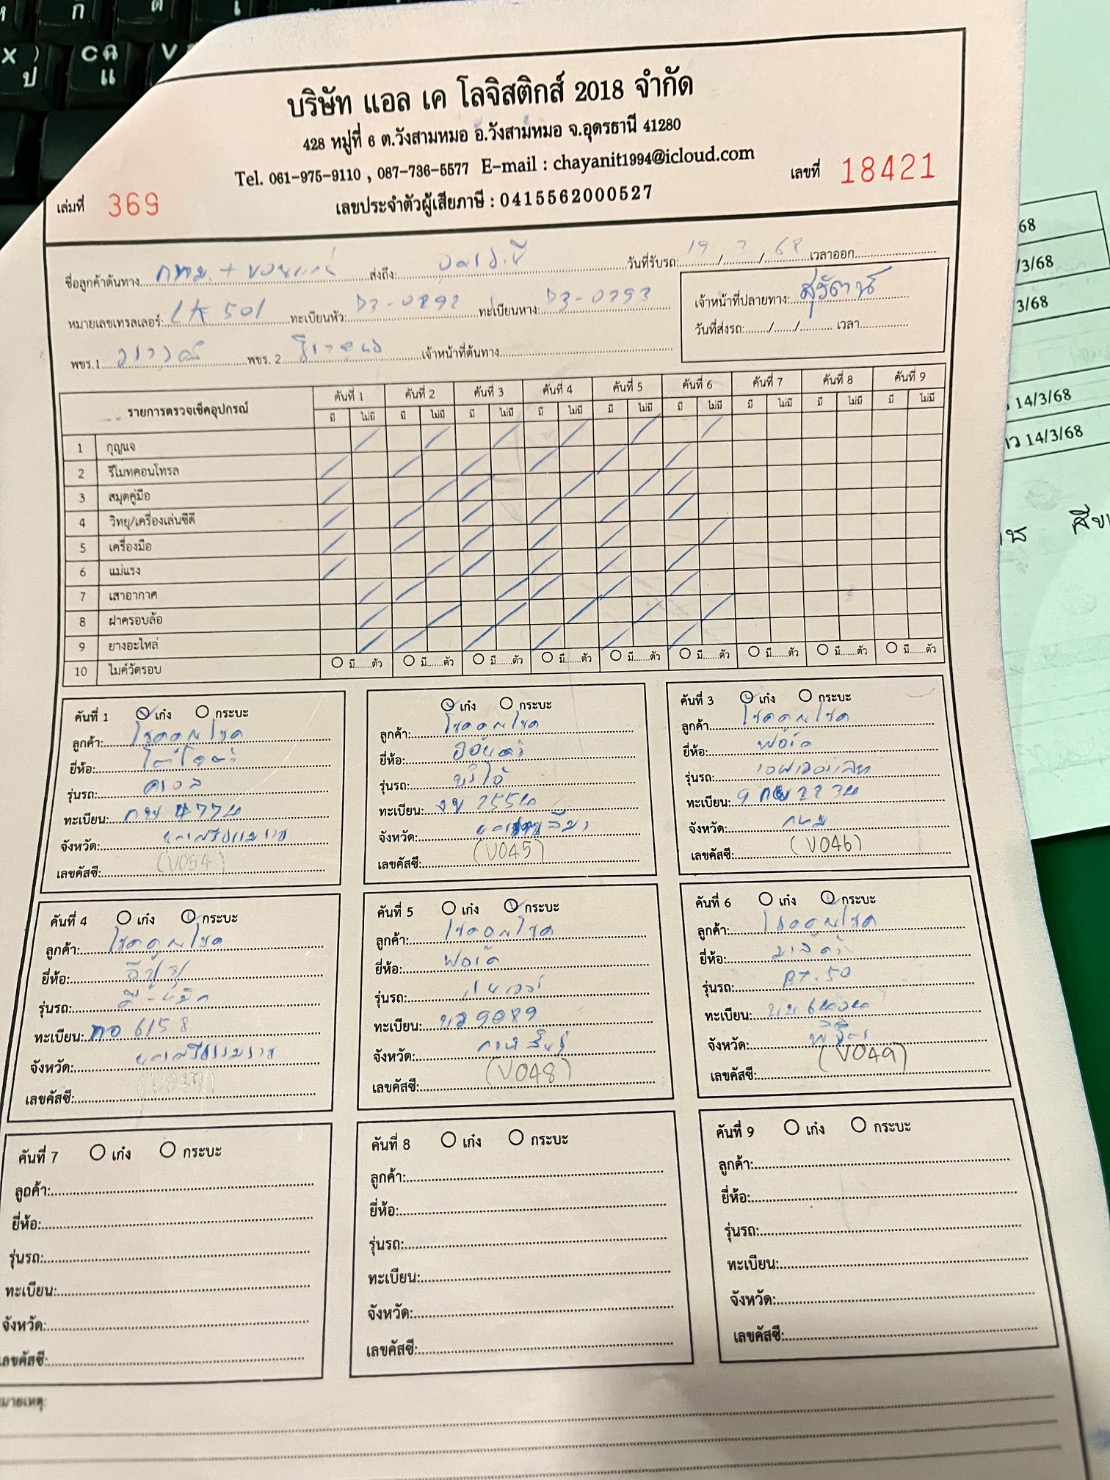 บริษัท แอล เค โลจิสติกส์ 2018 จำกัด
428 หมู่ที่ 6 ต.วังสามหมอ อ.วังสามหมอ จ.อุดรธานี 41280
Tel. 061-975-9110 , 087-736-5577 E-mail : chayanit1994@icloud.com
เล่มที่ 369 เลขประจำตัวผู้เสียภาษี : 0415562000527 เลขที่ 18421
ชื่อลูกค้าต้นทาง กทม. + ขอนแก่น ส่งถึง: วันที่รับรถ: 68 เวลาออก
หมายเลขเทรลเลอร์: LK 501 ทะเบียนหัว: ทะเบียนหาง:
เจ้าหน้าที่ปลายทาง: สุรัตน์
วันที่ส่งรถ: / / เวลา
พขร.1 พขร. 2 เจ้าหน้าที่ต้นทาง
รายการตรวจเช็คอุปกรณ์ คันที่ 1 คันที่ 2 คันที่ 3 คันที่ 4 คันที่ 5 คันที่ 6 คันที่ 7 คันที่ 8 คันที่ 9
มี ไม่มี มี ไม่มี มี ไม่มี มี ไม่มี มี ไม่มี มี ไม่มี มี ไม่มี มี ไม่มี มี ไม่มี
1 กุญแจ
2 รีโมทคอนโทรล
3 สมุดคู่มือ
4 วิทยุ/เครื่องเล่นซีดี
5 เครื่องมือ
6 แม่แรง
7 เสาอากาศ
8 ฝาครอบล้อ
9 ยางอะไหล่
10 ไมค์วัดรอบ มี ตัว มี ตัว มี ตัว มี ตัว มี ตัว มี ตัว มี ตัว มี ตัว มี ตัว
คันที่ 1 เก๋ง กระบะ
ลูกค้า: โชคคูณโชค
ยี่ห้อ: โตโยต้า
รุ่นรถ:
ทะเบียน:
จังหวัด: นครศรีธรรมราช
เลขคัสซี: (V054)
เก๋ง กระบะ
ลูกค้า: โชคคูณโชค
ยี่ห้อ: ฮอนด้า
รุ่นรถ: บริโอ้
ทะเบียน:
จังหวัด: นครราชสีมา
เลขคัสซี: (V045)
คันที่ 3 เก๋ง กระบะ
ลูกค้า: โชคคูณโชค
ยี่ห้อ: ฟอร์ด
รุ่นรถ: เอฟเวอเรส
ทะเบียน:
จังหวัด: กทม
เลขคัสซี: (V046)
คันที่ 4 เก๋ง กระบะ
ลูกค้า: โชคคูณโชค
ยี่ห้อ: อีซูซุ
รุ่นรถ: ดี-แม็ค
ทะเบียน: 6158
จังหวัด: นครศรีธรรมราช
เลขคัสซี:
คันที่ 5 เก๋ง กระบะ
ลูกค้า: โชคคูณโชค
ยี่ห้อ: ฟอร์ด
รุ่นรถ:
ทะเบียน: 9089
จังหวัด: กาฬสินธุ์
เลขคัสซี: (V048)
คันที่ 6 เก๋ง กระบะ
ลูกค้า: โชคคูณโชค
ยี่ห้อ: มาสด้า
รุ่นรถ: BT.50
ทะเบียน:
จังหวัด: พิจิตร
เลขคัสซี: (V049)
คันที่ 7 เก๋ง กระบะ
ลูกค้า:
ยี่ห้อ:
รุ่นรถ:
ทะเบียน:
จังหวัด:
เลขคัสซี:
คันที่ 8 เก๋ง กระบะ
ลูกค้า:
ยี่ห้อ:
รุ่นรถ:
ทะเบียน:
จังหวัด:
เลขคัสซี:
คันที่ 9 เก๋ง กระบะ
ลูกค้า:
ยี่ห้อ:
รุ่นรถ:
ทะเบียน:
จังหวัด:
เลขคัสซี:
68
/3/68
3/68
14/3/68
14/3/68